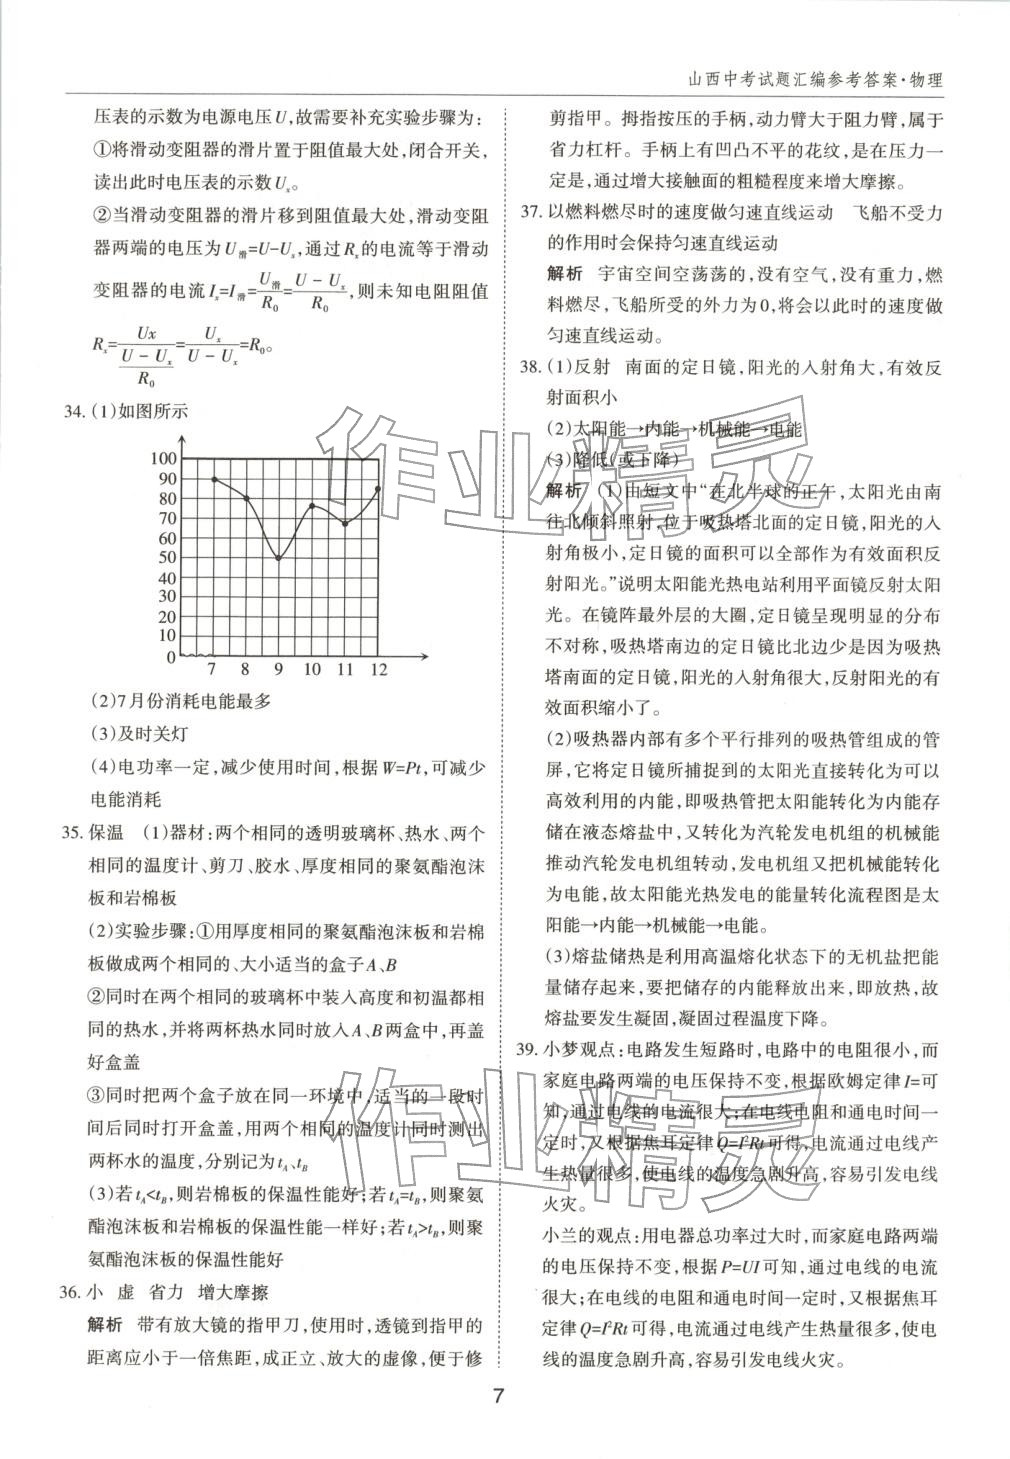 山西中考试题汇编参考答案·物理
压表的示数为电源电压U,故需要补充实验步骤为:
①将滑动变阻器的滑片置于阻值最大处,闭合开关,
读出此时电压表的示数Uₓ。
②当滑动变阻器的滑片移到阻值最大处,滑动变阻
器两端的电压为U滑=U-Uₓ,通过Rₓ的电流等于滑动
变阻器的电流Iₓ=I滑=U滑/R₀=(U-Uₓ)/R₀,则未知电阻阻值
Rₓ=Ux/((U-Uₓ)/R₀)=Uₓ/(U-Uₓ)=R₀。
34.(1)如图所示
100
90
80
70
60
50
40
30
20
10
0
7 8 9 10 11 12
(2)7月份消耗电能最多
(3)及时关灯
(4)电功率一定,减少使用时间,根据W=Pt,可减少
电能消耗
35.保温 (1)器材:两个相同的透明玻璃杯、热水、两个
相同的温度计、剪刀、胶水、厚度相同的聚氨酯泡沫
板和岩棉板
(2)实验步骤:①用厚度相同的聚氨酯泡沫板和岩棉
板做成两个相同的、大小适当的盒子A、B
②同时在两个相同的玻璃杯中装入高度和初温都相
同的热水,并将两杯热水同时放入A、B两盒中,再盖
好盒盖
③同时把两个盒子放在同一环境中,适当的一段时
间后同时打开盒盖,用两个相同的温度计同时测出
两杯水的温度,分别记为t_A、t_B
(3)若t_A<t_B,则岩棉板的保温性能好;若t_A=t_B,则聚氨
酯泡沫板和岩棉板的保温性能一样好;若t_A>t_B,则聚
氨酯泡沫板的保温性能好
36.小 虚 省力 增大摩擦
解析 带有放大镜的指甲刀,使用时,透镜到指甲的
距离应小于一倍焦距,成正立、放大的虚像,便于修
剪指甲。拇指按压的手柄,动力臂大于阻力臂,属于
省力杠杆。手柄上有凹凸不平的花纹,是在压力一
定是,通过增大接触面的粗糙程度来增大摩擦。
37.以燃料燃尽时的速度做匀速直线运动 飞船不受力
的作用时会保持匀速直线运动
解析 宇宙空间空荡荡的,没有空气,没有重力,燃
料燃尽,飞船所受的外力为0,将会以此时的速度做
匀速直线运动。
38.(1)反射 南面的定日镜,阳光的入射角大,有效反
射面积小
(2)太阳能→内能→机械能→电能
(3)降低(或下降)
解析 (1)由短文中“在北半球的正午,太阳光由南
往北倾斜照射,位于吸热塔北面的定日镜,阳光的入
射角极小,定日镜的面积可以全部作为有效面积反
射阳光。”说明太阳能光热电站利用平面镜反射太阳
光。在镜阵最外层的大圈,定日镜呈现明显的分布
不对称,吸热塔南边的定日镜比北边少是因为吸热
塔南面的定日镜,阳光的入射角很大,反射阳光的有
效面积缩小了。
(2)吸热器内部有多个平行排列的吸热管组成的管
屏,它将定日镜所捕捉到的太阳光直接转化为可以
高效利用的内能,即吸热管把太阳能转化为内能存
储在液态熔盐中,又转化为汽轮发电机组的机械能
推动汽轮发电机组转动,发电机组又把机械能转化
为电能,故太阳能光热发电的能量转化流程图是太
阳能→内能→机械能→电能。
(3)熔盐储热是利用高温熔化状态下的无机盐把能
量储存起来,要把储存的内能释放出来,即放热,故
熔盐要发生凝固,凝固过程温度下降。
39.小梦观点:电路发生短路时,电路中的电阻很小,而
家庭电路两端的电压保持不变,根据欧姆定律I=可
知,通过电线的电流很大;在电线电阻和通电时间一
定时,又根据焦耳定律Q=I²Rt可得,电流通过电线产
生热量很多,使电线的温度急剧升高,容易引发电线
火灾。
小兰的观点:用电器总功率过大时,而家庭电路两端
的电压保持不变,根据P=UI可知,通过电线的电流
很大;在电线的电阻和通电时间一定时,又根据焦耳
定律Q=I²Rt可得,电流通过电线产生热量很多,使电
线的温度急剧升高,容易引发电线火灾。
7
作业精灵
作业精灵